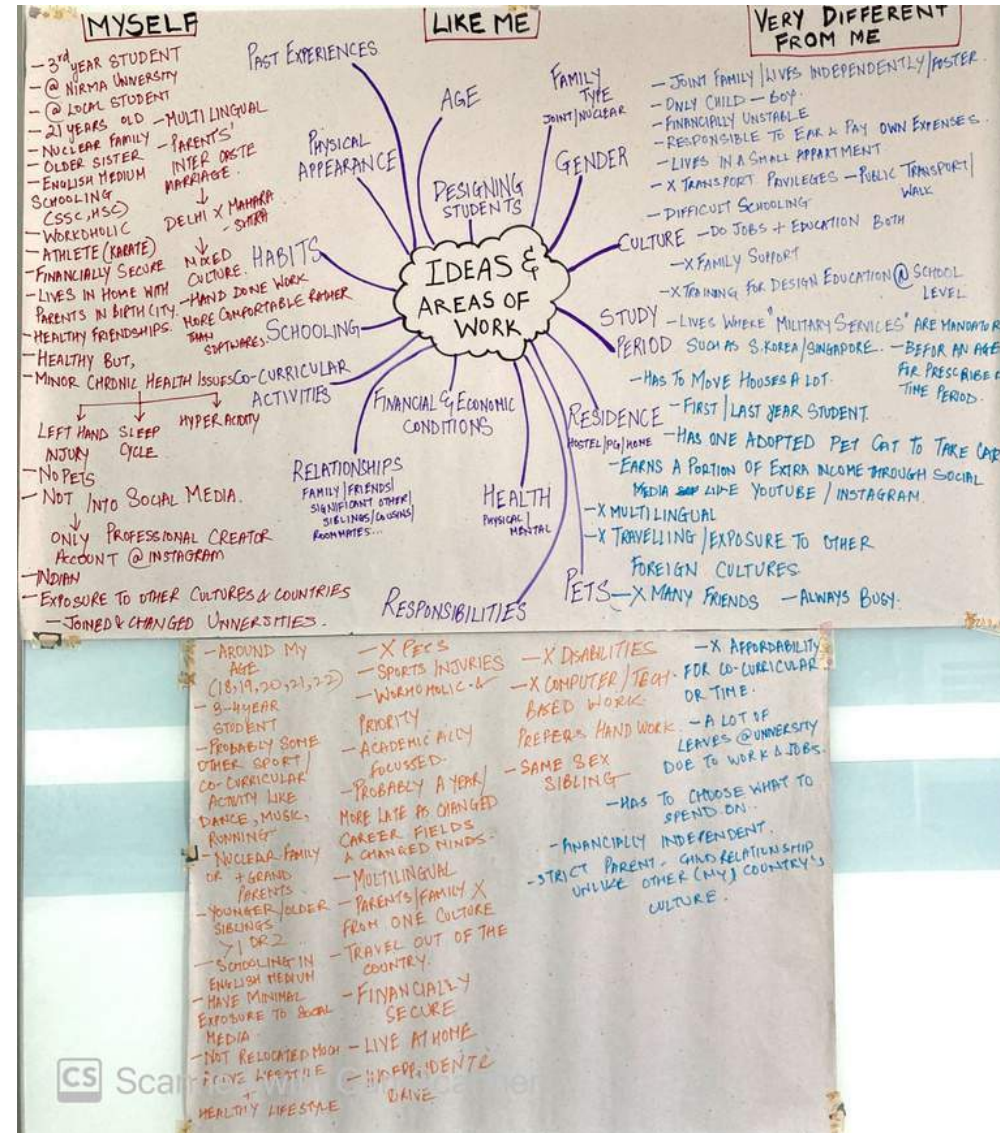 MYSELF
- 3rd YEAR STUDENT
- @ NIRMA UNIVERSITY
- @ LOCAL STUDENT
- 21 YEARS OLD
- NUCLEAR FAMILY
- OLDER SISTER
- ENGLISH MEDIUM
SCHOOLING
(SSC, HSC)
- WORKOHOLIC
- ATHLETE (KARATE)
- FINANCIALLY SECURE
- LIVES IN HOME WITH
PARENTS IN BIRTH CITY.
- HEALTHY FRIENDSHIPS.
- HEALTHY BUT,
- MINOR CHRONIC HEALTH ISSUES
LEFT HAND
INJURY
SLEEP
CYCLE
HYPER ACIDITY
- NO PETS
- NOT INTO SOCIAL MEDIA.
ONLY PROFESSIONAL CREATOR
ACCOUNT @ INSTAGRAM
- INDIAN
- EXPOSURE TO OTHER CULTURES & COUNTRIES
- JOINED & CHANGED UNIVERSITIES.
- MULTI LINGUAL
- PARENTS'
INTER CASTE
MARRIAGE.
DELHI X MAHARA
- SHTRA
MIXED
CULTURE.
- HAND DONE WORK
MORE COMFORTABLE RATHER
THAN
SOFTWARES.
LIKE ME
PAST EXPERIENCES
AGE
FAMILY
TYPE
JOINT/NUCLEAR
PHYSICAL
APPEARANCE
DESIGNING
STUDENTS
GENDER
HABITS
CULTURE
IDEAS &
AREAS OF
WORK
SCHOOLING
STUDY
PERIOD
CO-CURRICULAR
ACTIVITIES
FINANCIAL & ECONOMIC
CONDITIONS
RESIDENCE
HOSTEL/PG/HOME
RELATIONSHIPS
FAMILY/FRIENDS/
SIGNIFICANT OTHER/
SIBLINGS/COUSINS/
ROOMMATES...
HEALTH
PHYSICAL/
MENTAL
RESPONSIBILITIES
PETS
VERY DIFFERENT
FROM ME
- JOINT FAMILY/LIVES INDEPENDENTLY/FOSTER.
- ONLY CHILD - BOY.
- FINANCIALLY UNSTABLE
- RESPONSIBLE TO EAR & PAY OWN EXPENSES.
- LIVES IN A SMALL APPARTMENT
- X TRANSPORT PRIVILEGES - PUBLIC TRANSPORT/
WALK
- DIFFICULT SCHOOLING
- DO JOBS + EDUCATION BOTH
- X FAMILY SUPPORT
- X TRAINING FOR DESIGN EDUCATION @ SCHOOL
LEVEL
- LIVES WHERE "MILITARY SERVICES" ARE MANDATOR
SUCH AS S.KOREA/SINGAPORE. - BEFOR AN AGE
FOR PRESCRIBE
TIME PERIOD.
- HAS TO MOVE HOUSES A LOT.
- FIRST/LAST YEAR STUDENT.
- HAS ONE ADOPTED PET CAT TO TAKE CARE
- EARNS A PORTION OF EXTRA INCOME THROUGH SOCIAL
MEDIA LIKE YOUTUBE / INSTAGRAM.
- X MULTILINGUAL
- X TRAVELLING/EXPOSURE TO OTHER
FOREIGN CULTURES
- X MANY FRIENDS - ALWAYS BUSY.
- AROUND MY
AGE
(18,19,20,21,22)
- 3-4 YEAR
STUDENT
- PROBABLY SOME
OTHER SPORT/
CO-CURRICULAR
ACTIVITY LIKE
DANCE, MUSIC,
RUNNING
- NUCLEAR FAMILY
OR + GRAND
PARENTS.
- YOUNGER/OLDER
SIBLINGS
>1 OR 2
- SCHOOLING IN
ENGLISH MEDIUM
- HAVE MINIMAL
EXPOSURE TO SOCIAL
MEDIA
- NOT RELOCATED MUCH
LIFESTYLE
+
HEALTHY LIFESTYLE
- X PETS
- SPORTS INJURIES
- WORKOHOLIC
PRIORITY
- ACADEMICALLY
FOCUSSED.
- PROBABLY A YEAR/
MORE LATE AS CHANGED
CAREER FIELDS
& CHANGED MINDS.
- MULTILINGUAL
- PARENTS/FAMILY X
FROM ONE CULTURE
- TRAVEL OUT OF THE
COUNTRY.
- FINANCIALLY
SECURE
- LIVE AT HOME
DRIVE
- X DISABILITIES
- X COMPUTER/TECH.
BASED WORK
PREFERS HAND WORK
- SAME SEX
SIBLING
- X AFFORDABILITY
FOR CO-CURRICULAR
OR TIME.
- A LOT OF
LEAVES @ UNIVERSITY
DUE TO WORK & JOBS.
- HAS TO CHOOSE WHAT TO
SPEND ON..
- FINANCIALLY INDEPENDENT.
- STRICT PARENT - CHILD RELATIONSHIP
UNLIKE OTHER (MY) COUNTRY'S
CULTURE.
CS